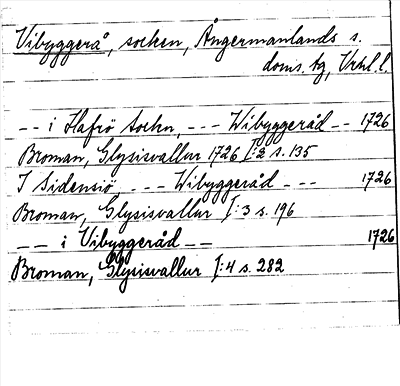 Vibyggerå, socken, Ångermanlands s.
doms. tg, Vrnl. l.
-- i Hafrö Sockn, --- Wibyggeråd -- 1726
Broman, Glysisvallur 1726 I:2 s. 135
I Sidensiö, --- Wibyggeråd --- 1726
Broman, Glysisvallur I:3 s. 196
-- i Vibyggeråd -- 1726
Broman, Glysisvallur I:4 s. 282